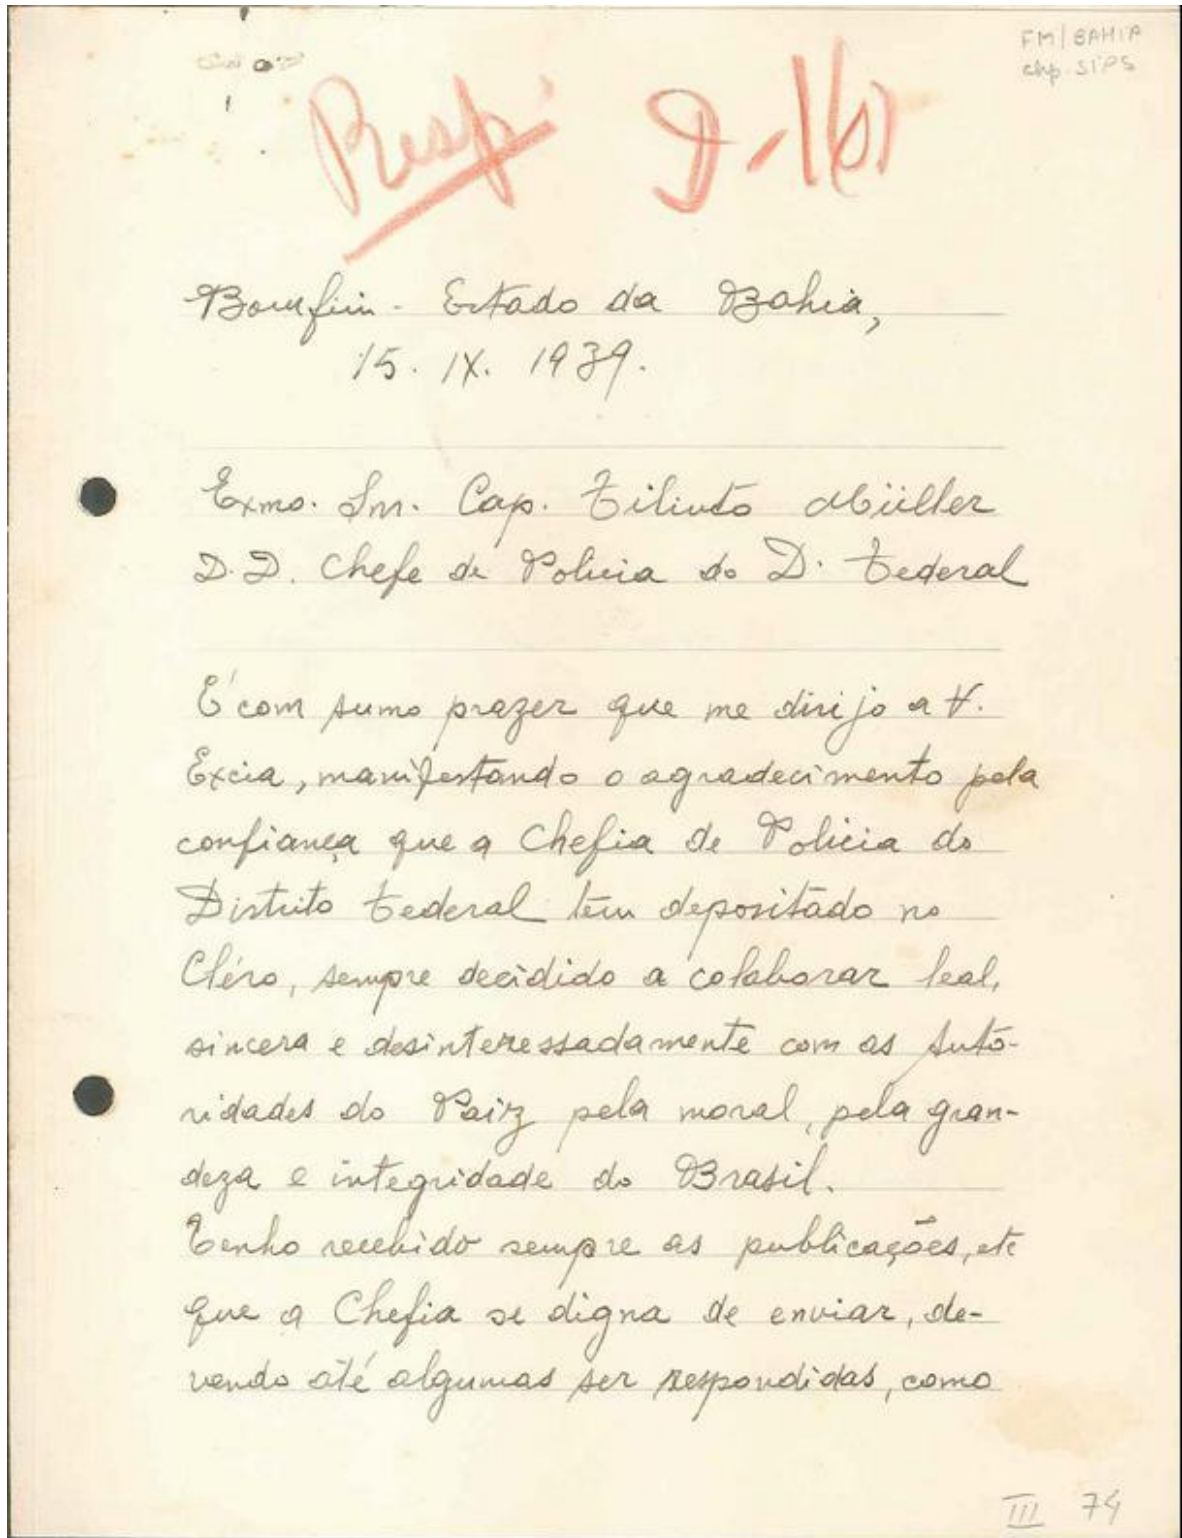 FM/BAHIA
chp. SIPS
Resp.
Bomfim - Estado da Bahia,
15. IX. 1939.
Exmo. Snr. Cap. Filinto Müller
D.D. Chefe de Policia do D. Federal
É com sumo prazer que me dirijo a V.
Excia, manifestando o agradecimento pela
confiança que a Chefia de Policia do
Distrito Federal tem depositado no
Cléro, sempre decidido a colaborar leal,
sincera e desinteressadamente com as Auto-
ridades do Paiz pela moral, pela gran-
deza e integridade do Brasil.
Tenho recebido sempre as publicações, etc
que a Chefia se digna de enviar, de-
vendo até algumas ser respondidas, como
III 74